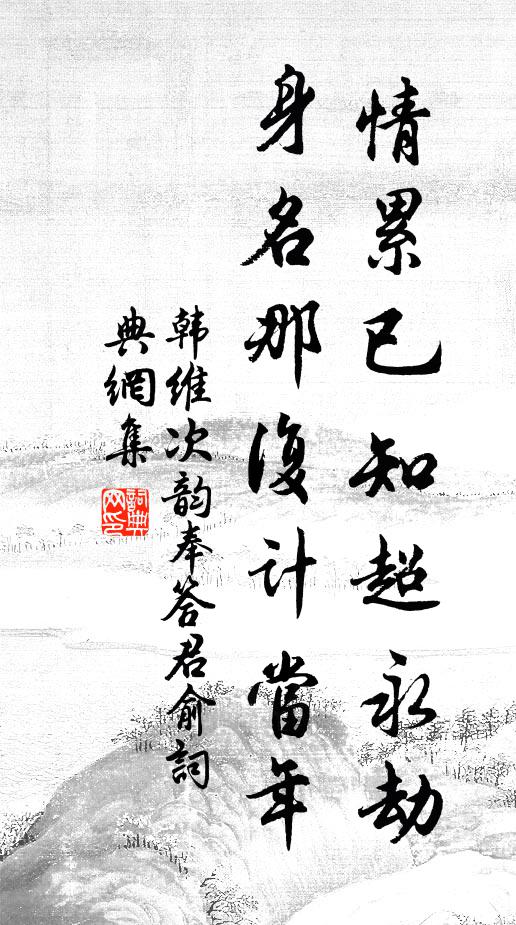 情累已知超永劫
身名那復计當年
韩維次韵奉答君俞詞
典網集
詞典
网印